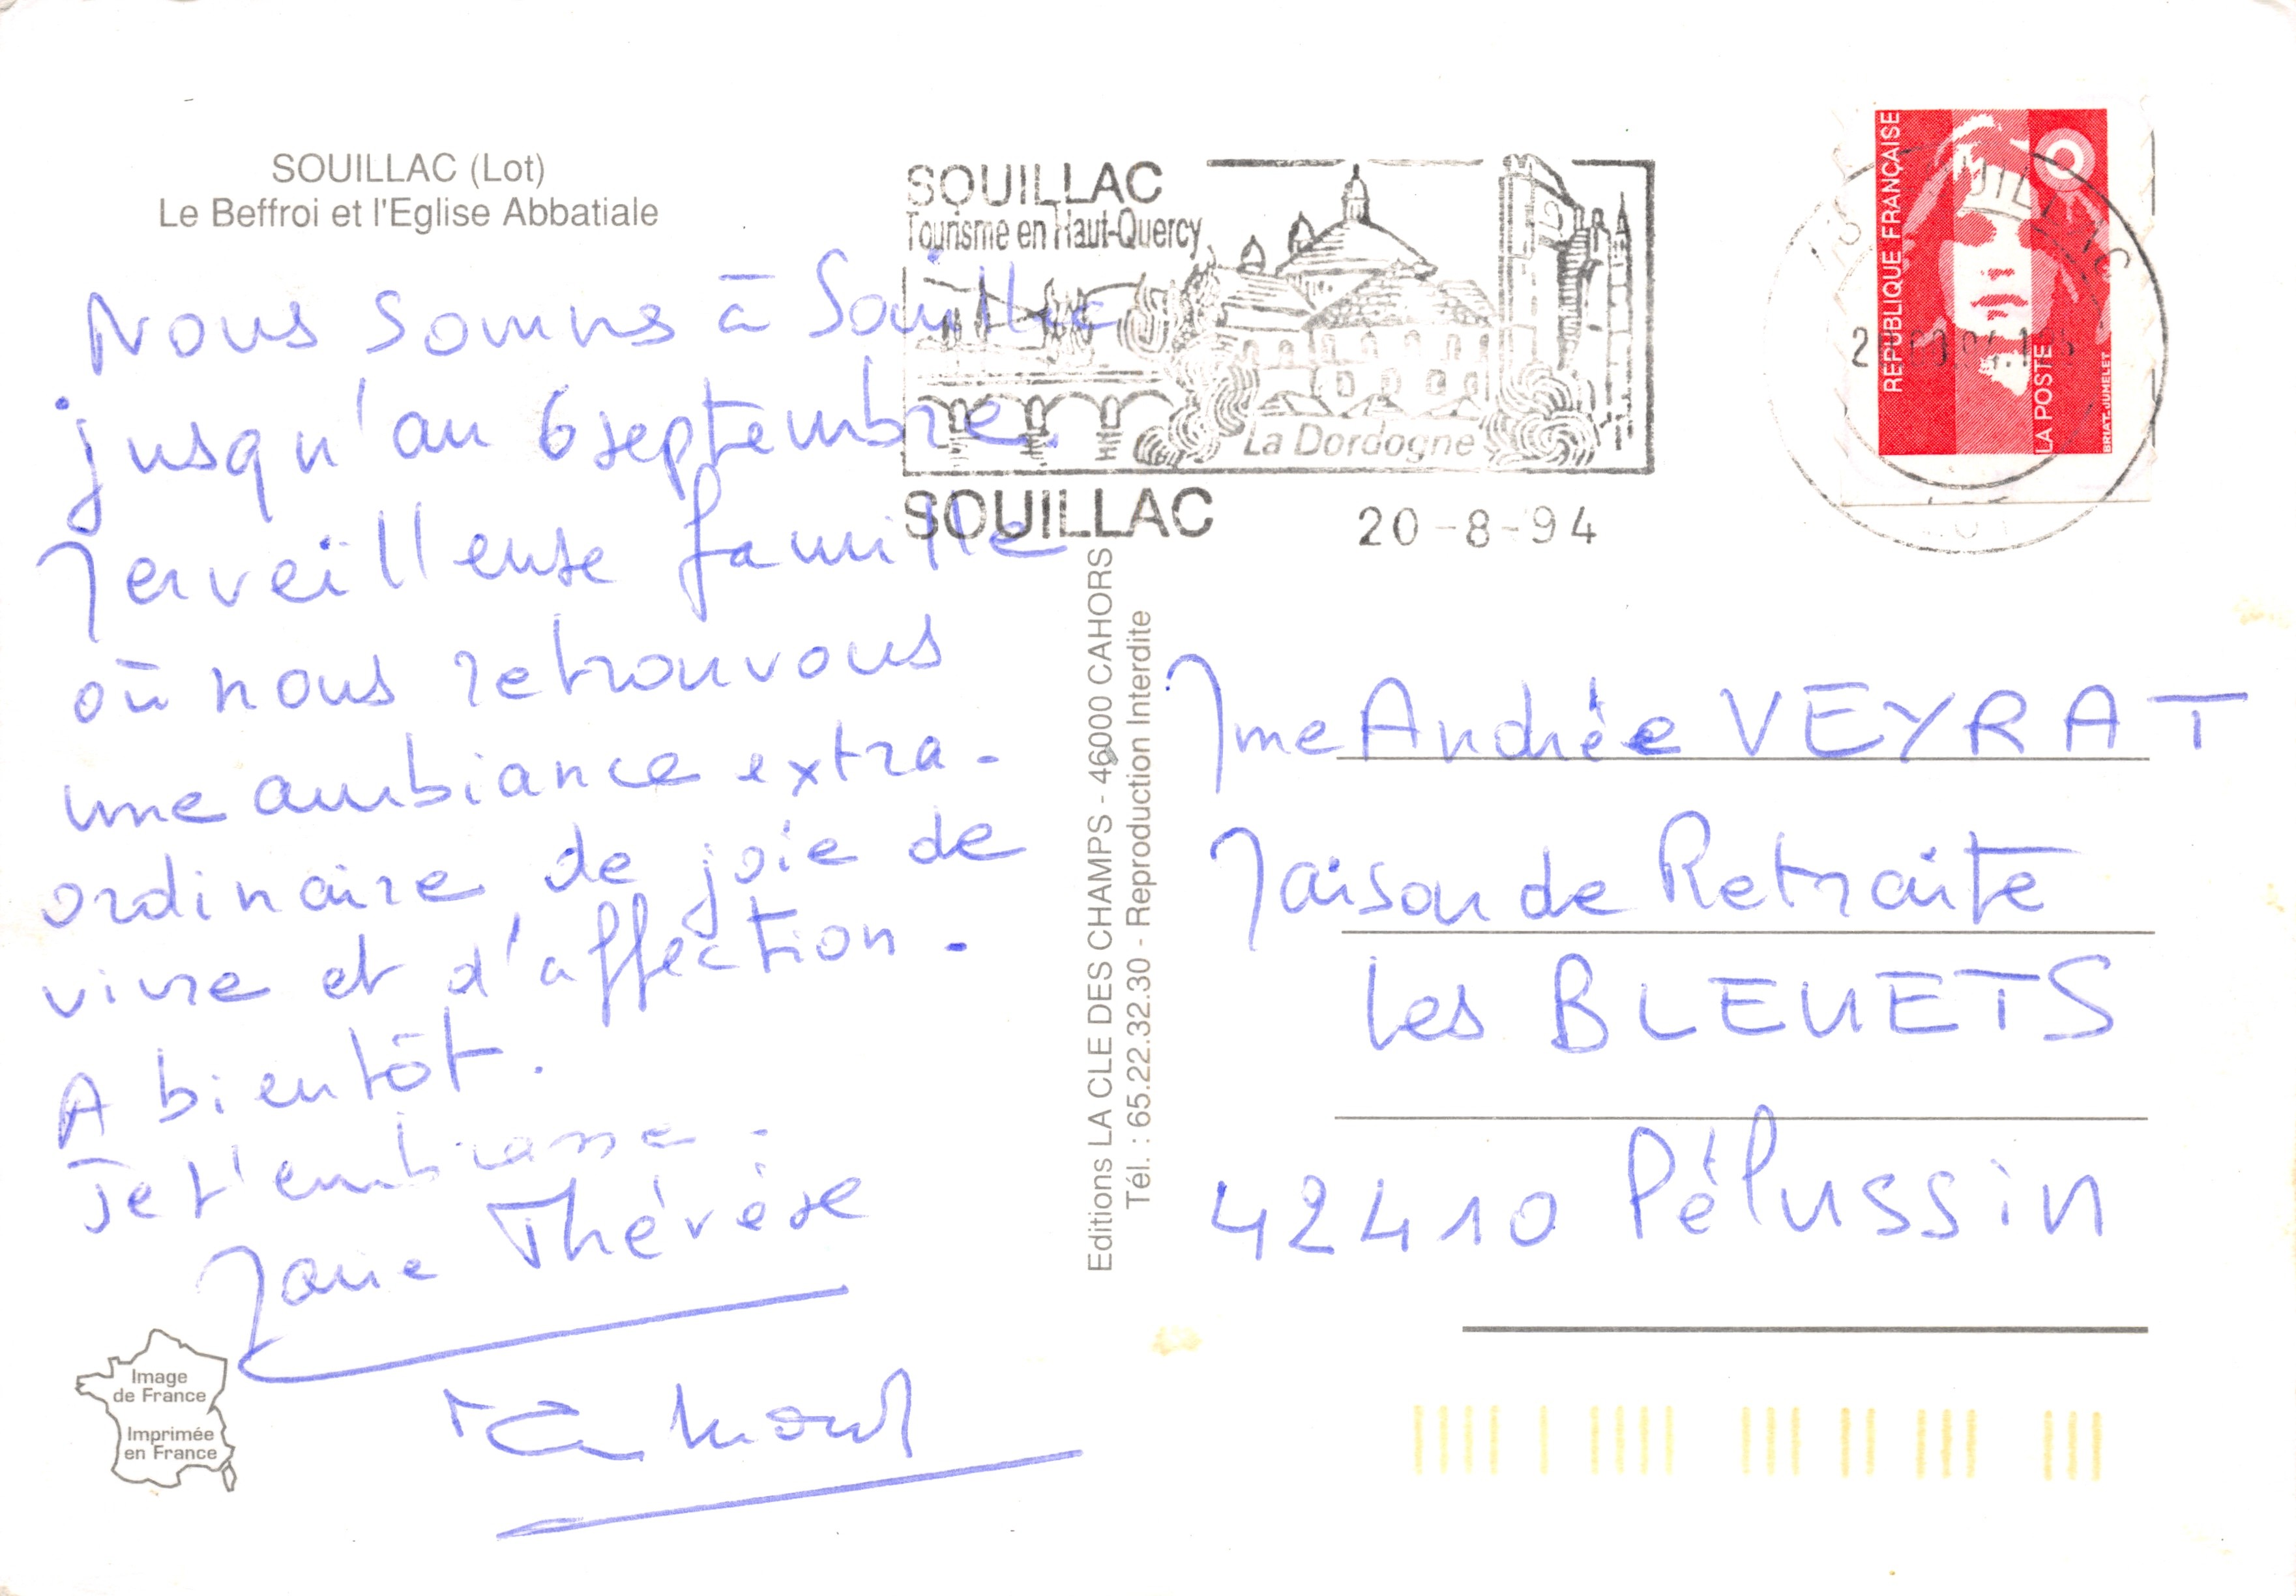 SOUILLAC (Lot)
Le Beffroi et l'Eglise Abbatiale
Nous sommes à Souillac
jusqu'au 6 septembre.
Merveilleuse famille
où nous retrouvons
une ambiance extra-
ordinaire de joie de
vivre et d'affection.
A bientôt.
Je t'embrasse.
Marie Thérèse
Image
de France
Imprimée
en France
Editions LA CLE DES CHAMPS - 46000 CAHORS
Tél. : 65.22.32.30 - Reproduction Interdite
SOUILLAC
Tourisme en Haut-Quercy
La Dordogne
SOUILLAC
20-8-94
REPUBLIQUE FRANÇAISE
LA POSTE
BRIAT-JUMELET
LOT
Mme Andrée VEYRAT
Maison de Retraite
Les BLEUETS
42410 Pélussin